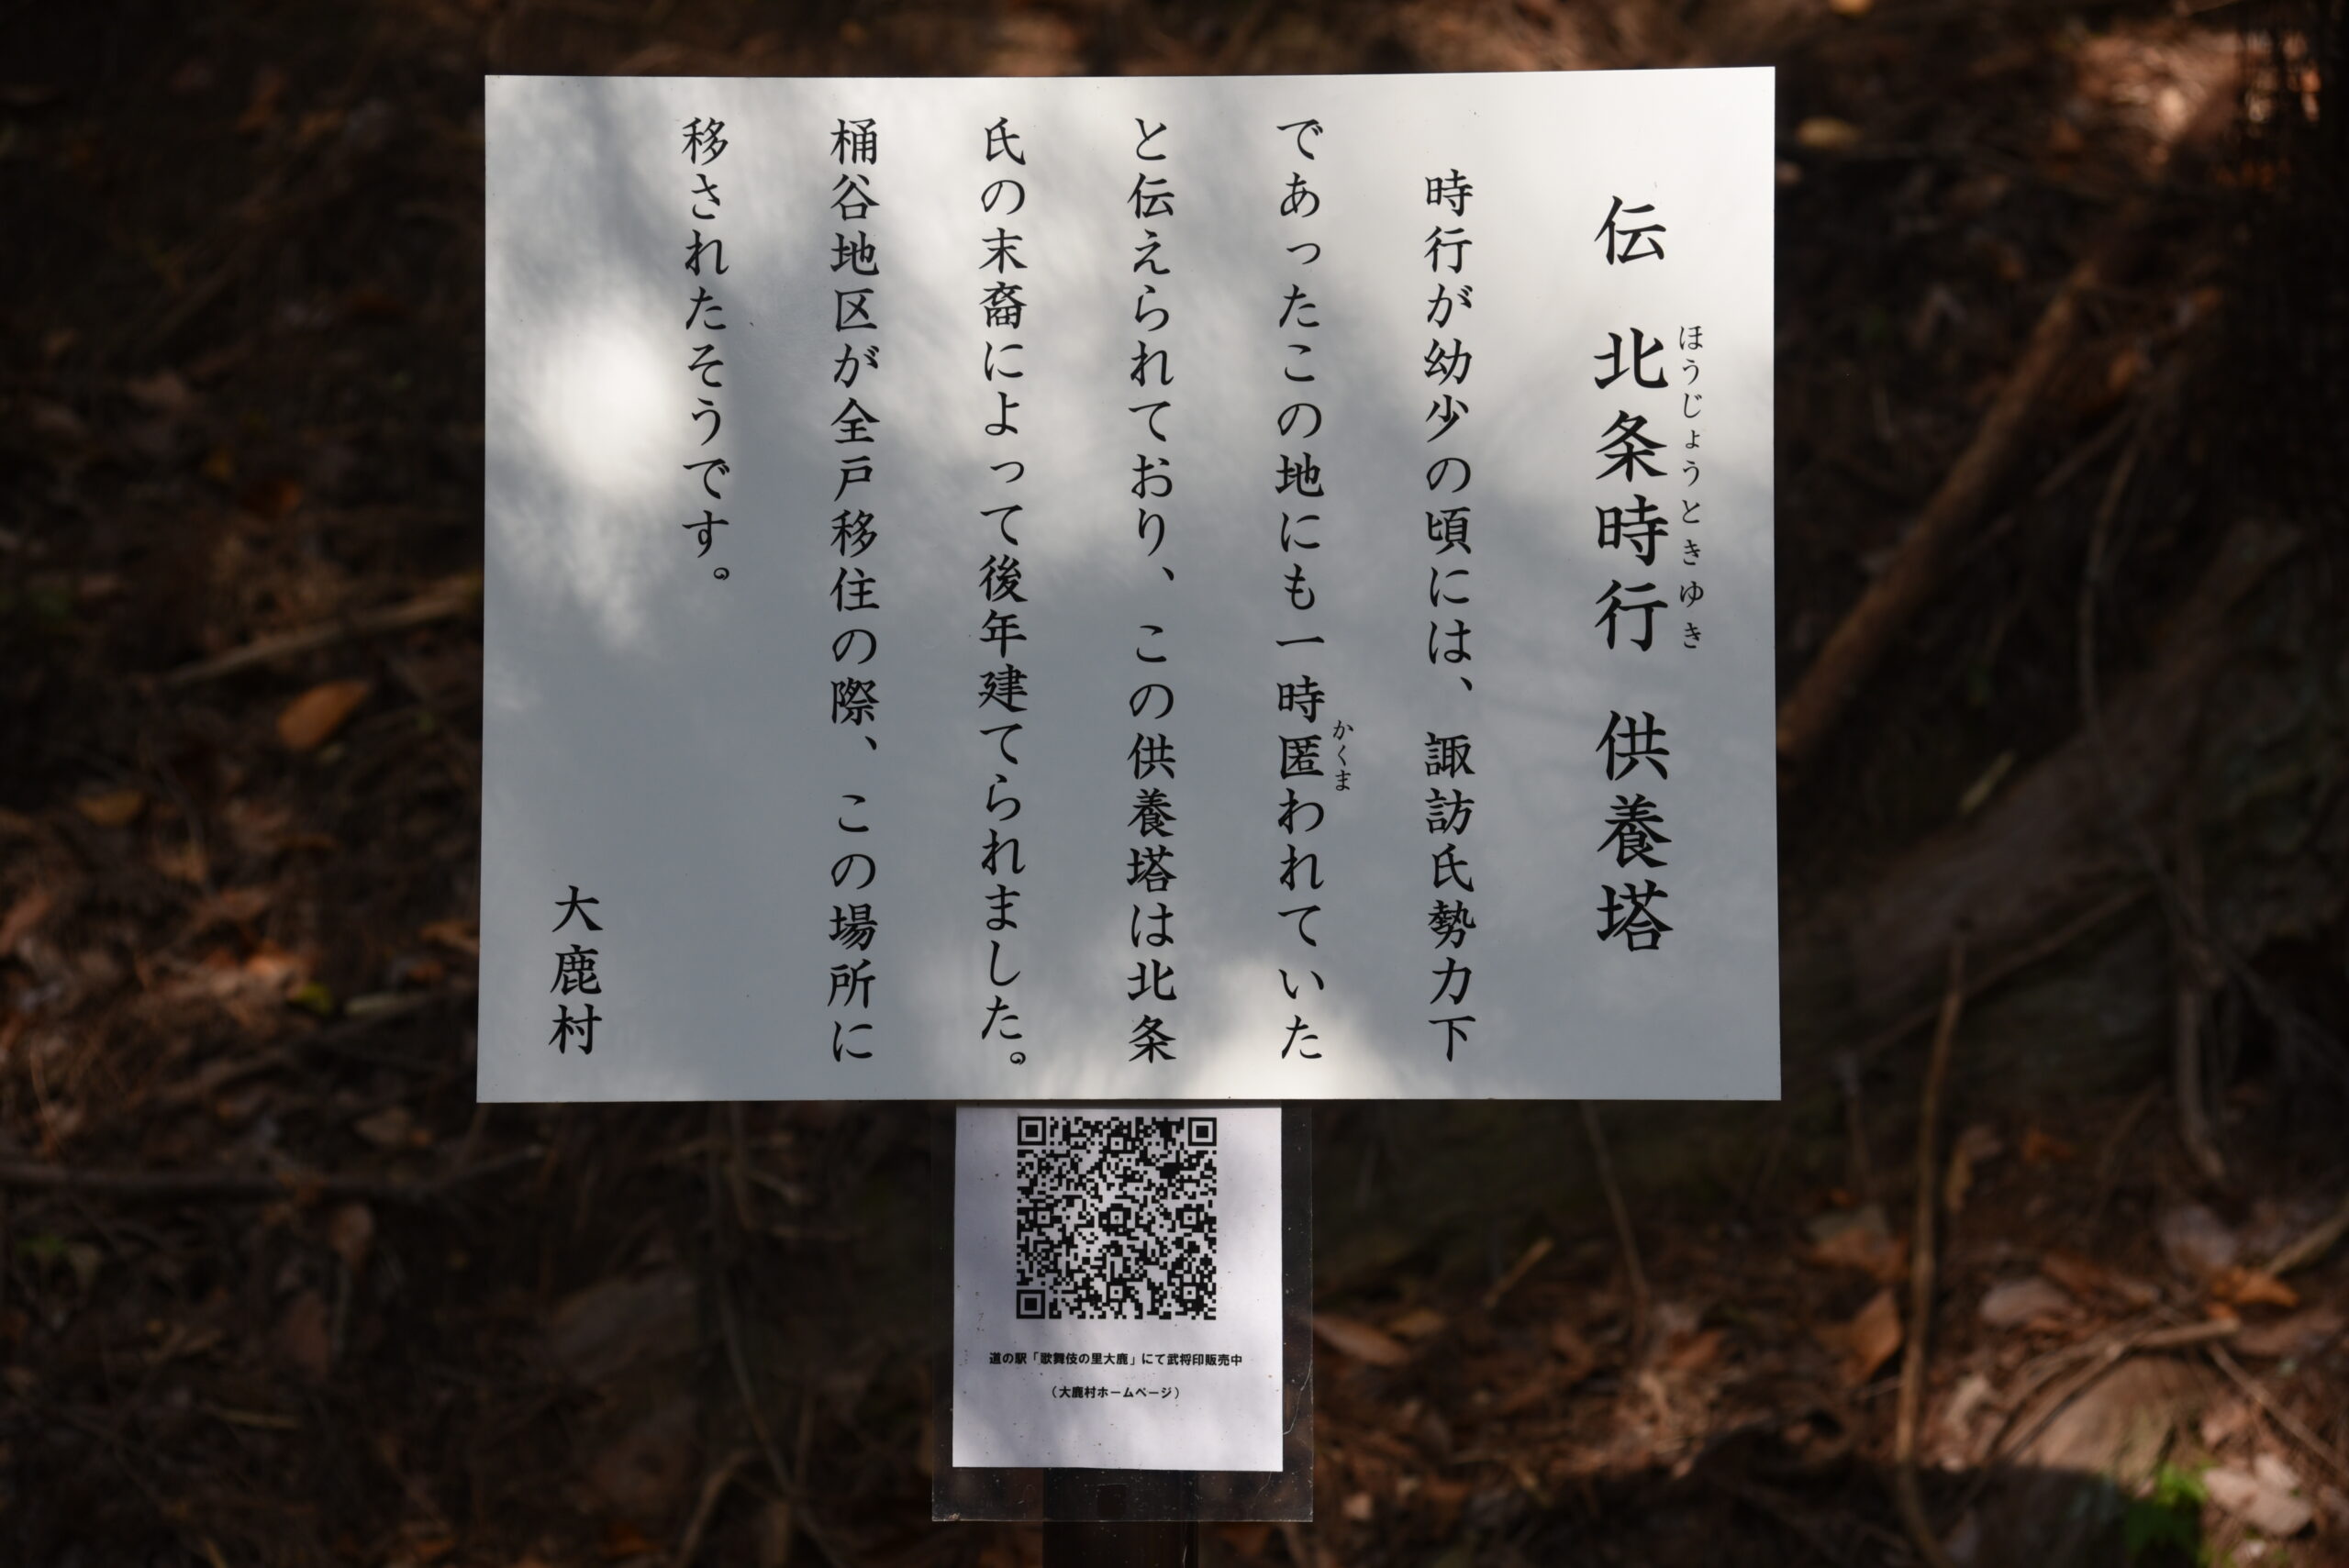 伝 北条時行 供養塔
ほうじょうときゆき
時行が幼少の頃には、諏訪氏勢力下
であったこの地にも一時匿われていた
かくま
と伝えられており、この供養塔は北条
氏の末裔によって後年建てられました。
桶谷地区が全戸移住の際、この場所に
移されたそうです。
大鹿村
道の駅「歌舞伎の里大鹿」にて武将印販売中
（大鹿村ホームページ）